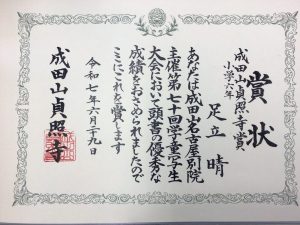 賞状
成田山貞照寺賞
小学六年
足立 晴
あなたは成田山名古屋別院
主催第七十回学童写生
大会において頭書の優秀な
成績をおさめられましたので
ここにこれを賞します
令和七年六月二十九日
成田山貞照寺